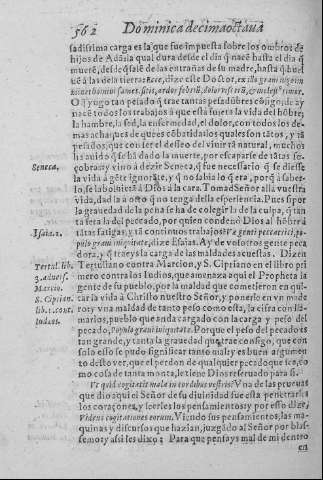 562 Dominica decimaoctaua
sadissima carga es la que fue impuesta sobre los ombros de
hijos de Adã, la qual dura desde el dia q̃ nacẽ hasta el dia q̃
muerẽ, desde q̃ salẽ de las entrañas de su madre, hasta q̃ buel
uẽ a las dela tierra: Ecce, dize este Doctor, ex illo graui iugo in
O q̃ yugo tan pesado q̃ trae tantas pesadũbres cõsigo; de ay
nacẽ todos los trabajos a que està sujeta la vida del hõbre;
la hambre, la sed, la enfermedad, el dolor, con todos los de-
mas achaques de quẽ es cõbatida: los quales son tãtos, y tã
pesados, que con ser el desseo del viuir tã natural, muchos
ha auido q̃ se hã dado la muerte, por escaparse de tãtas ço-
Seneca.
çobras: y vino à dezir Seneca, q̃ fue necessario q̃ se diesse
la vida à gẽte ignorãte, y q̃ no sabia lo q̃ era, porq̃ à saber-
lo, se la boluierã à Dios à la cara. Tomad Señor allà vuestra
vida, dad la a otro q̃ no tenga della esperiencia. Pues si por
la grauedad de la pena se ha de colegir la de la culpa, q̃ tan
ta serà la del pecado, por quien condenò Dios al hõbre à
Isaia. 1.
tãtas fatigas, y tã continuos trabajos? Væ genti peccatrici, po-
pulo graui iniquitate, dize Esaias. Ay de vosotros gente peca
dora, y q̃ traeys la carga de las maldades acuestas. Dizen
Tertul. lib.
Tertuliano contra Marcion, y S. Cipriano en el libro pri
3. aduers.
mero contra los Iudios, que amenaza aqui el Propheta la
Marcio.
gente de su pueblo, por la maldad que cometieron en qui-
S. Ciprian.
tar la vida à Christo nuestro Señor, y ponerlo en vn made
lib. 1. cont.
ro: y vna maldad de tanto peso como esta, la cifra con lla-
Iudæos.
marlos, pueblo que anda cargado con la carga y peso del
pecado, Populo graui iniquitate. Porque el peso del pecado es
tan grande, y tanta la grauedad que trae consigo, que con
solo esto se pudo significar tanto mal: y es buen argumen
to desto ver, que el perdon de qualquier pecado que sea, co
mo cosa de tanta monta, le tiene Dios reseruado para si.
Vt quid cogitatis mala in cordibus vestris? Vna de las prueuas
que dio aqui el Señor de su diuinidad fue esta penetrarles
los coraçones, y leerles los pensamientos: y por esso dize,
Videns cogitationes eorum. Viendo sus pensamientos, las ma-
quinas y discursos que hazian, juzgado al Señor por blas-
femo: y assi les dixo: Para que pensays mal de mi dentro
en